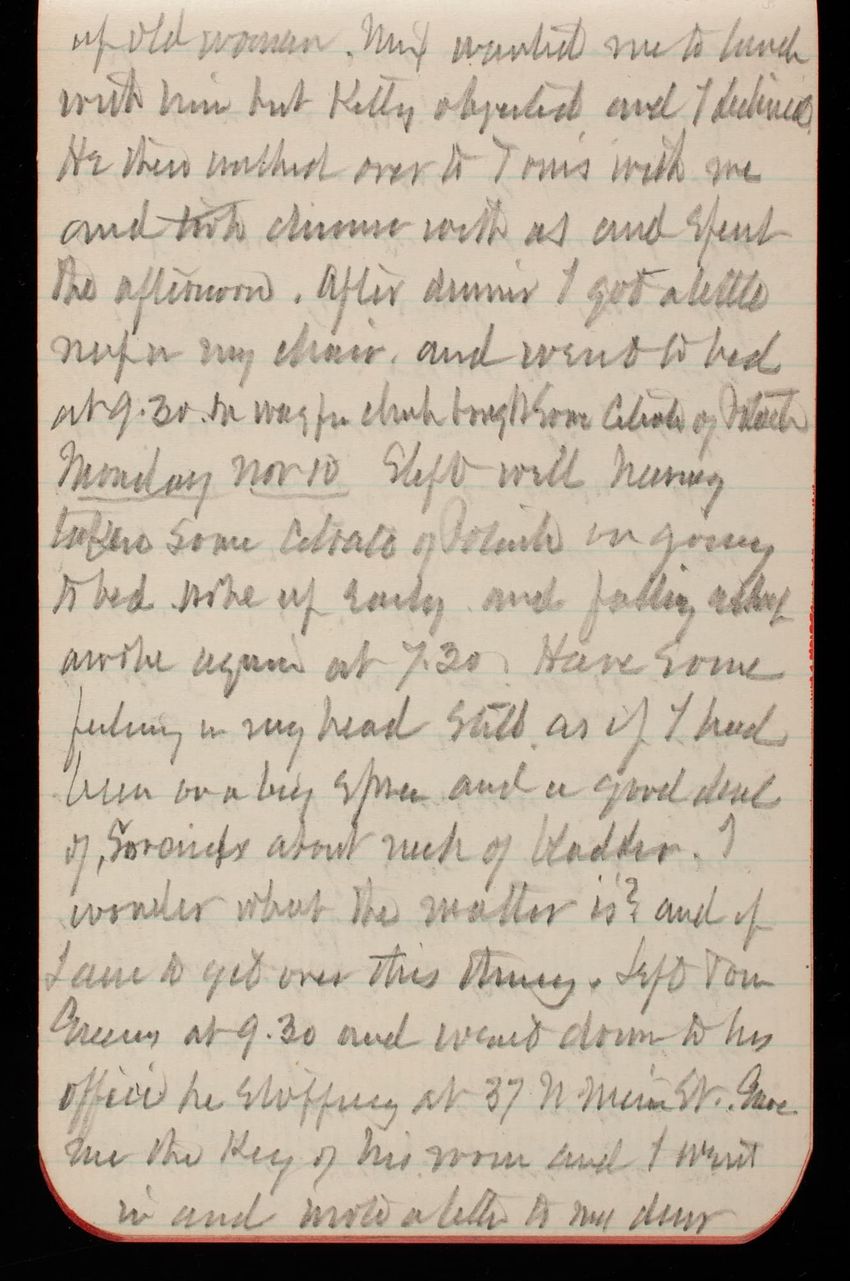 of old woman. Mix wanted me to lunch
with him but Kitty objected and I declined
He then walked over to Tom's with me
and took dinner with us and spent
the afternoon. After dinner I got a little
nap in my chair. and went to bed
at 9.30. On way fm church bought some Citrate of Potash
Monday Nov 10 Slept well having
taken some Citrate of Potash on going
to bed. Woke up early and falling asleep
awoke again at 7.30. Have some
feeling in my head still as if I had
been on a big spree and a good deal
of soreness about neck of bladder. I
wonder what the matter is? and if
I am to get over this thing. Left Tom
Greens at 9.30 and went down to his
office he stopping at 37 N Main St. Gave
me the Key of his room and I went
in and wrote a letter to my dear